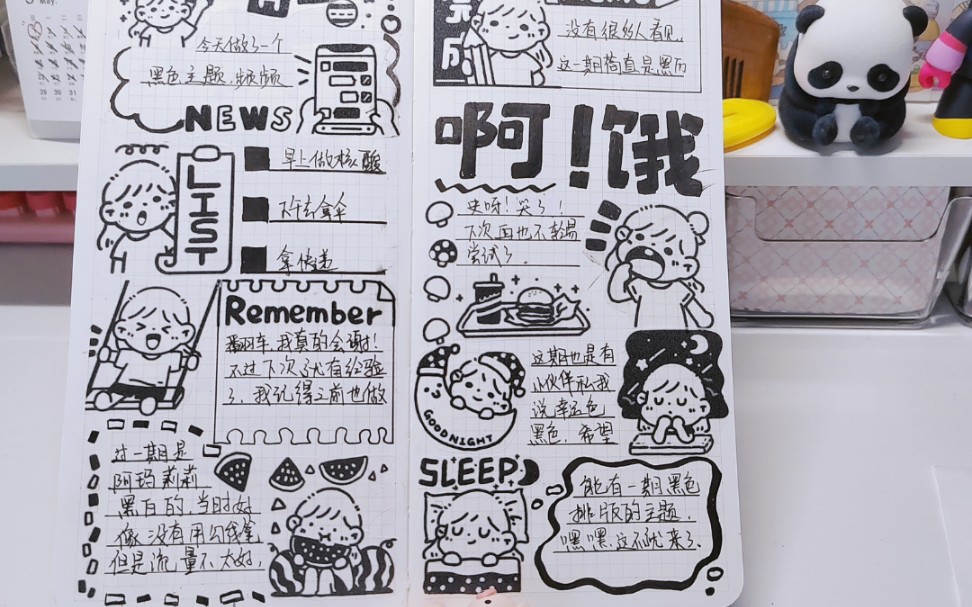 今天做了一个
黑色主题，频频
NEWS
LIST
早上做核酸
下午去拿伞
拿快递
Remember
翻车，我真的会谢！
不过下次就有经验
了，我记得之前也做
过一期是
阿玛莉莉
黑白的，当时好
像没有用勾线笔
但是流量不太好，
完成
没有很多人看见，
这一期简直是黑历
啊！饿
史呀！哭了！
下次再也不轻易
尝试了。
GOODNIGHT
这期也是有
小伙伴私我
说幸运色
黑色，希望
SLEEP
能有一期黑色
排版的主题，
嘿嘿，这不就来了。
May.